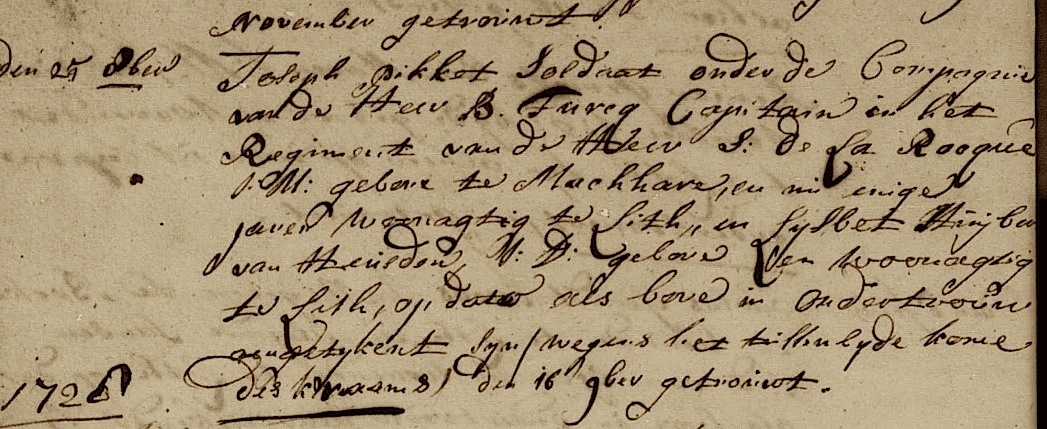 November getrouwt
den 25 8ber Joseph Pikket Soldaat onder de Compagnie
van de Heer B. Turcq Capitain in het
Regiment van de Heer S: de La Rocque
J:M: gebore te Machhare, en nu enige
jaren woonagtig te Lith, en Lysbet Huijber
van Heusden, J: D: gebore en woonagtig
te Lith, op dato als bove in ondertrouw
aengetykent syn (wegens het tussen
des kraams) den 16 9ber getrouwt.
172